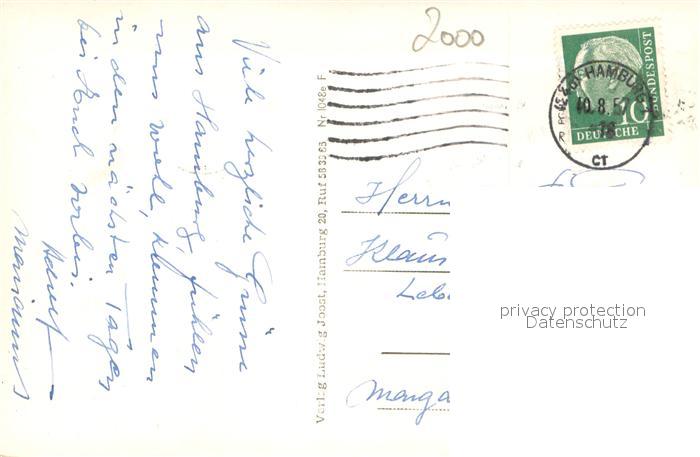 Viele herzliche Grüsse
aus Hamburg, fühlen
uns wohl, kommen
in den nächsten Tagen
bei Euch vorbei.
Marianne
Verlag Ludwig Joost, Hamburg 20, Ruf 583986 Nr. 1048e F
2000
HAMBURG
10.8.57
CT
10
DEUTSCHE
BUNDESPOST
Herrn
Klaus
privacy protection
Datenschutz